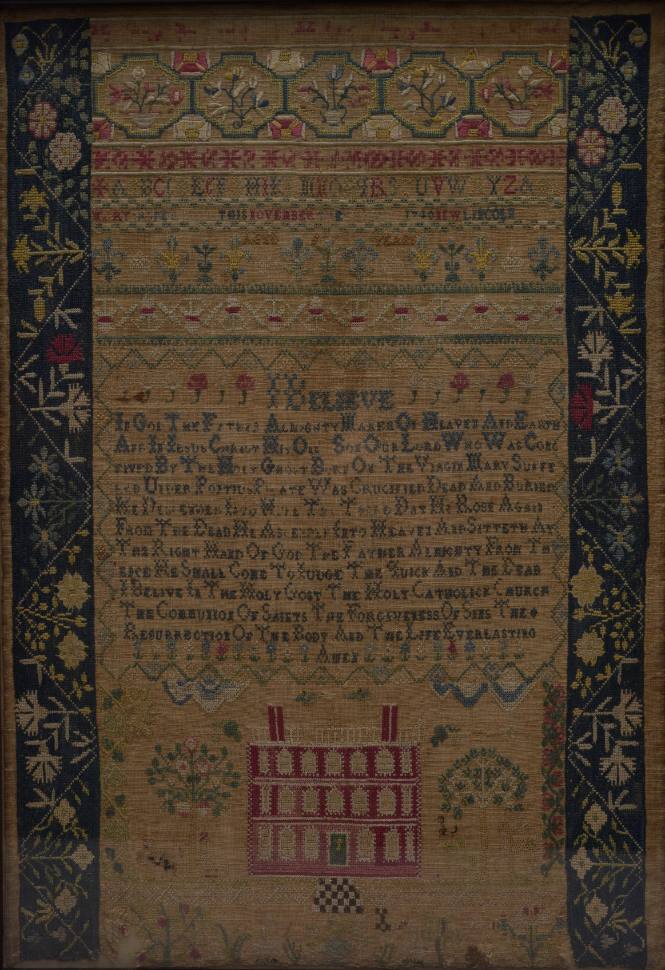 THIS NOVEMBER 1740 NEW LINCOLN
AGED YEARS
I BELIEVE
IN GOD THE FATHER ALMIGHTY MAKER OF HEAVEN AND EARTH
AND IN JESUS CHRIST HIS ONL SON OUR LORD WHO WAS CONC
EIVED BY THE HOLY GHOST BORN OF THE VIRGIN MARY SUFFE
RED UNDER PONTIUS PILATE WAS CRUCIFIED DEAD AND BURIED
HE DESCENDED INTO HELL THE THIRD DAY HE ROSE AGAIN
FROM THE DEAD HE ASCENDED INTO HEAVEN AND SITTETH AT
THE RIGHT HAND OF GOD THE FATHER ALMIGHTY FROM TH
ENCE HE SHALL COME TO JUDGE THE QUICK AND THE DEAD
I BELIVE IN THE HOLY GOST THE HOLY CATHOLICK CHURCH
THE COMMUNION OF SAINTS THE FORGIVENESS OF SINS THE
RESURRECTION OF THE BODY AND THE LIFE EVERLASTING
AMEN